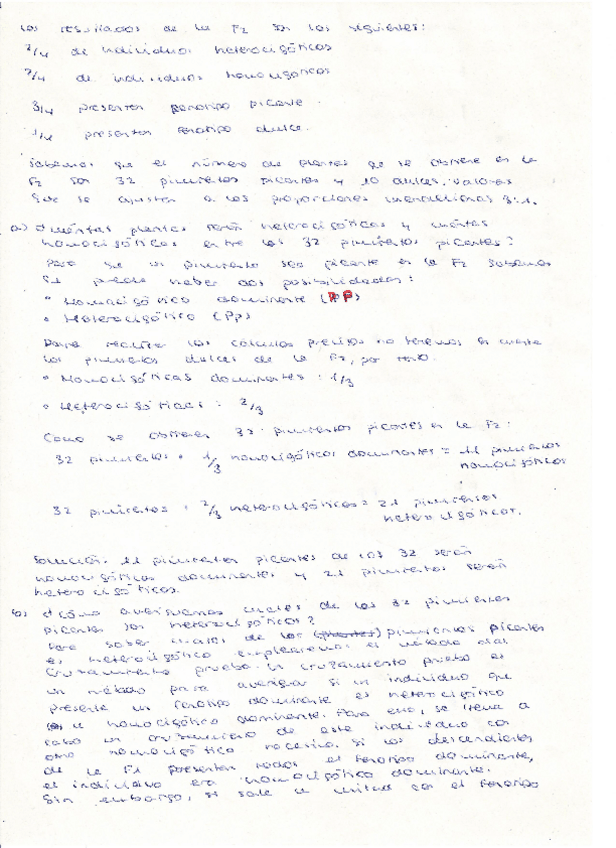 Los resultados de la F2 son los siguientes:
2/4 de individuos heterocigóticos
2/4 de individuos homocigóticos
3/4 presentan fenotipo picante
1/4 presentan fenotipo dulce.
Sabemos que el número de plantas que se obtiene en la
F2 son 32 pimientos picantes y 10 dulces. Valores
que se ajustan a las proporciones mendelianas 3:1.
a) ¿Cuántas plantas serán heterocigóticas y cuántas
homocigóticas entre los 32 pimientos picantes?
Para que un pimiento sea picante en la F2 sabemos
que puede haber dos posibilidades:
• Homocigótico dominante (PP)
• Heterocigótico (Pp)
Para realizar los cálculos precisos no tenemos en cuenta
los pimientos dulces de la F2, por tanto.
• Homocigóticas dominantes: 1/3
• Heterocigóticas: 2/3
Como se obtienen 32 pimientos picantes en la F2:
32 pimientos · 1/3 homocigóticos dominantes = 11 pimientos
homocigóticos
32 pimientos · 2/3 heterocigóticos = 21 pimientos
heterocigóticos.
Solución. 11 pimientos picantes de los 32 serán
homocigóticos dominantes y 21 pimientos serán
heterocigóticos.
b) ¿Cómo averiguamos cuales de los 32 pimientos
picantes son heterocigóticos?
Para saber cuales de los (plantas) pimientos picantes
es heterocigótico emplearemos el método del
cruzamiento prueba. Un cruzamiento prueba es
un método para averiguar si un individuo que
presenta un fenotipo dominante es heterocigótico
u homocigótico dominante. Para ello, se lleva a
cabo un cruzamiento de este individuo con
otro homocigótico recesivo. Si los descendientes
de la F1 presentan todos el fenotipo dominante,
el individuo era homocigótico dominante.
Sin embargo, si sale la mitad con el fenotipo